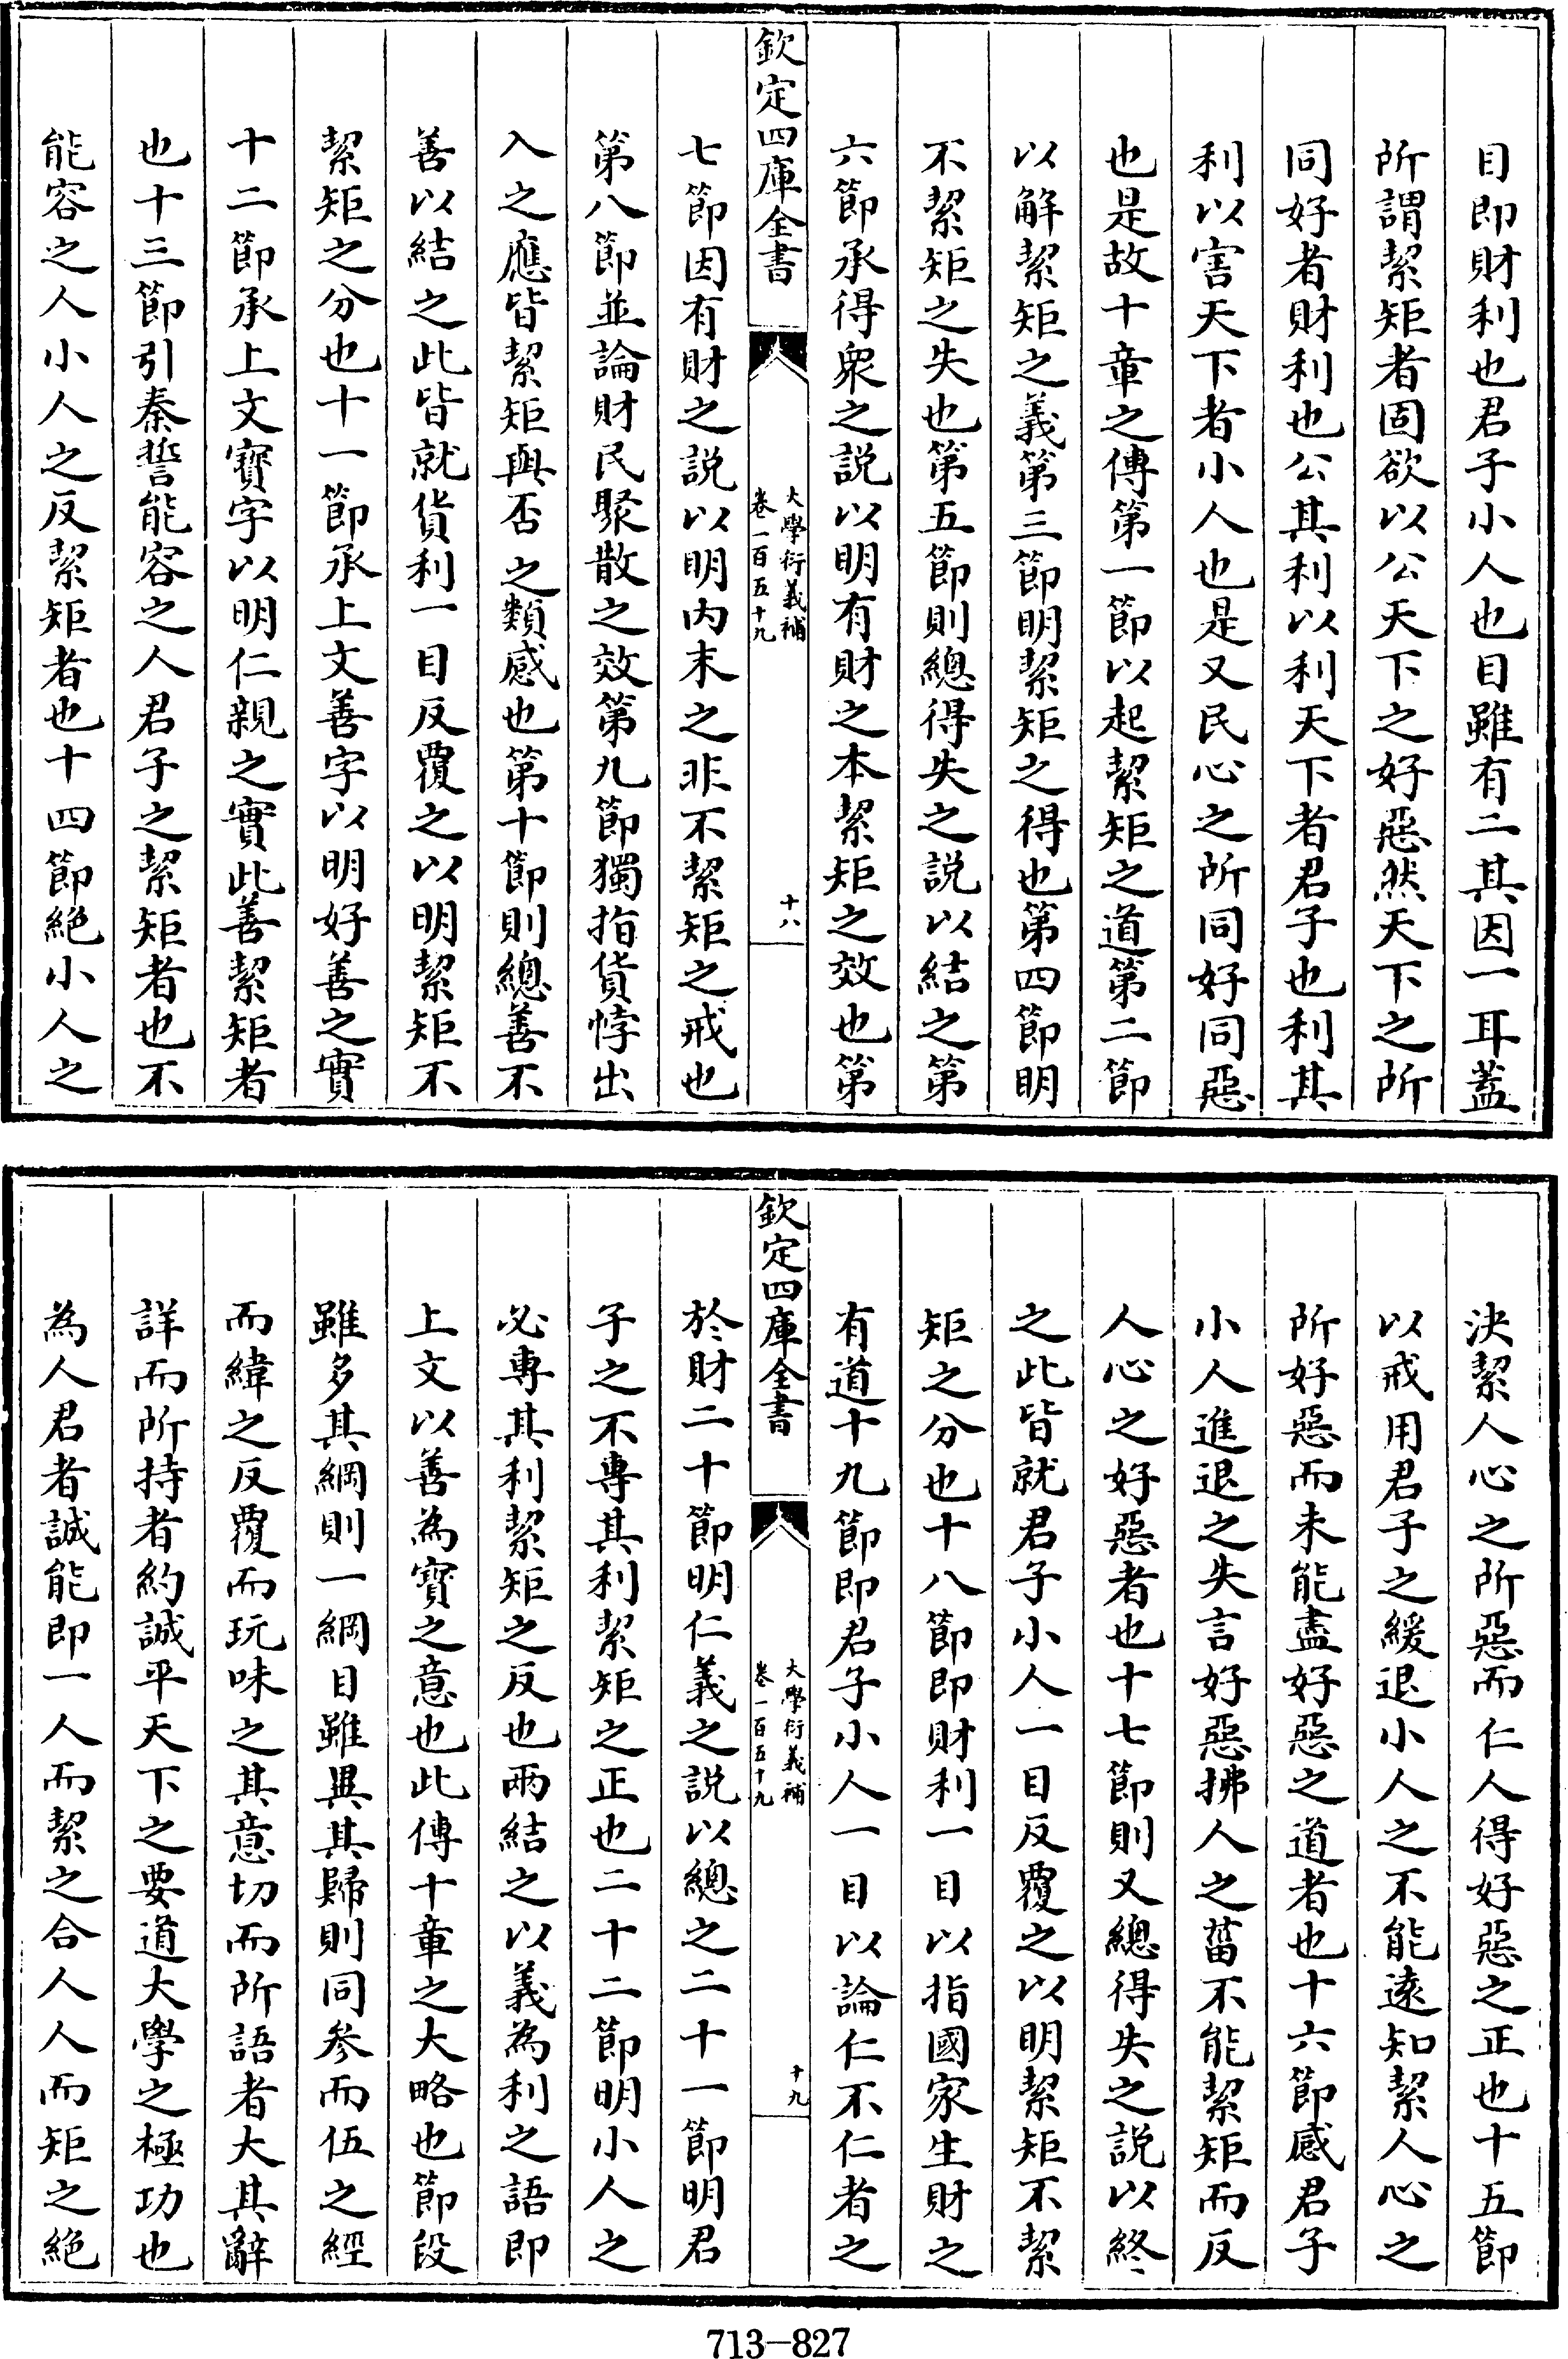 目即財利也君子小人也目雖有二其因一耳蓋
所謂絜矩者固欲以公天下之好惡然天下之所
同好者財利也公其利以利天下者君子也利其
利以害天下者小人也是又民心之所同好同惡
也是故十章之傳第一節以起絜矩之道第二節
以解絜矩之義第三節明絜矩之得也第四節明
不絜矩之失也第五節則總得失之說以結之第
六節承得衆之說以明有財之本絜矩之效也第
欽定四庫全書
大學衍義補
卷一百五十九
十八
七節因有財之說以明内末之非不絜矩之戒也
第八節並論財民聚散之效第九節獨指貨悖出
入之應皆絜矩與否之類感也第十節則總善不
善以結之此皆就貨利一目反覆之以明絜矩不
絜矩之分也十一節承上文善字以明好善之實
十二節承上文寶字以明仁親之實此善絜矩者
也十三節引秦誓能容之人君子之絜矩者也不
能容之人小人之反絜矩者也十四節絶小人之
決絜人心之所惡而仁人得好惡之正也十五節
以戒用君子之緩退小人之不能遠知絜人心之
所好惡而未能盡好惡之道者也十六節感君子
小人進退之失言好惡拂人之菑不能絜矩而反
人心之好惡者也十七節則又總得失之說以終
之此皆就君子小人一目反覆之以明絜矩不絜
矩之分也十八節即財利一目以指國家生財之
有道十九節即君子小人一目以論仁不仁者之
欽定四庫全書
大學衍義補
卷一百五十九
十九
於財二十節明仁義之說以總之二十一節明君
子之不專其利絜矩之正也二十二節明小人之
必專其利絜矩之反也兩結之以義為利之語即
上文以善為寶之意也此傳十章之大略也節段
雖多其綱則一綱目雖異其歸則同參而伍之經
而緯之反覆而玩味之其意切而所語者大其辭
詳而所持者約誠平天下之要道大學之極功也
為人君者誠能即一人而絜之合人人而矩之絶
713-827